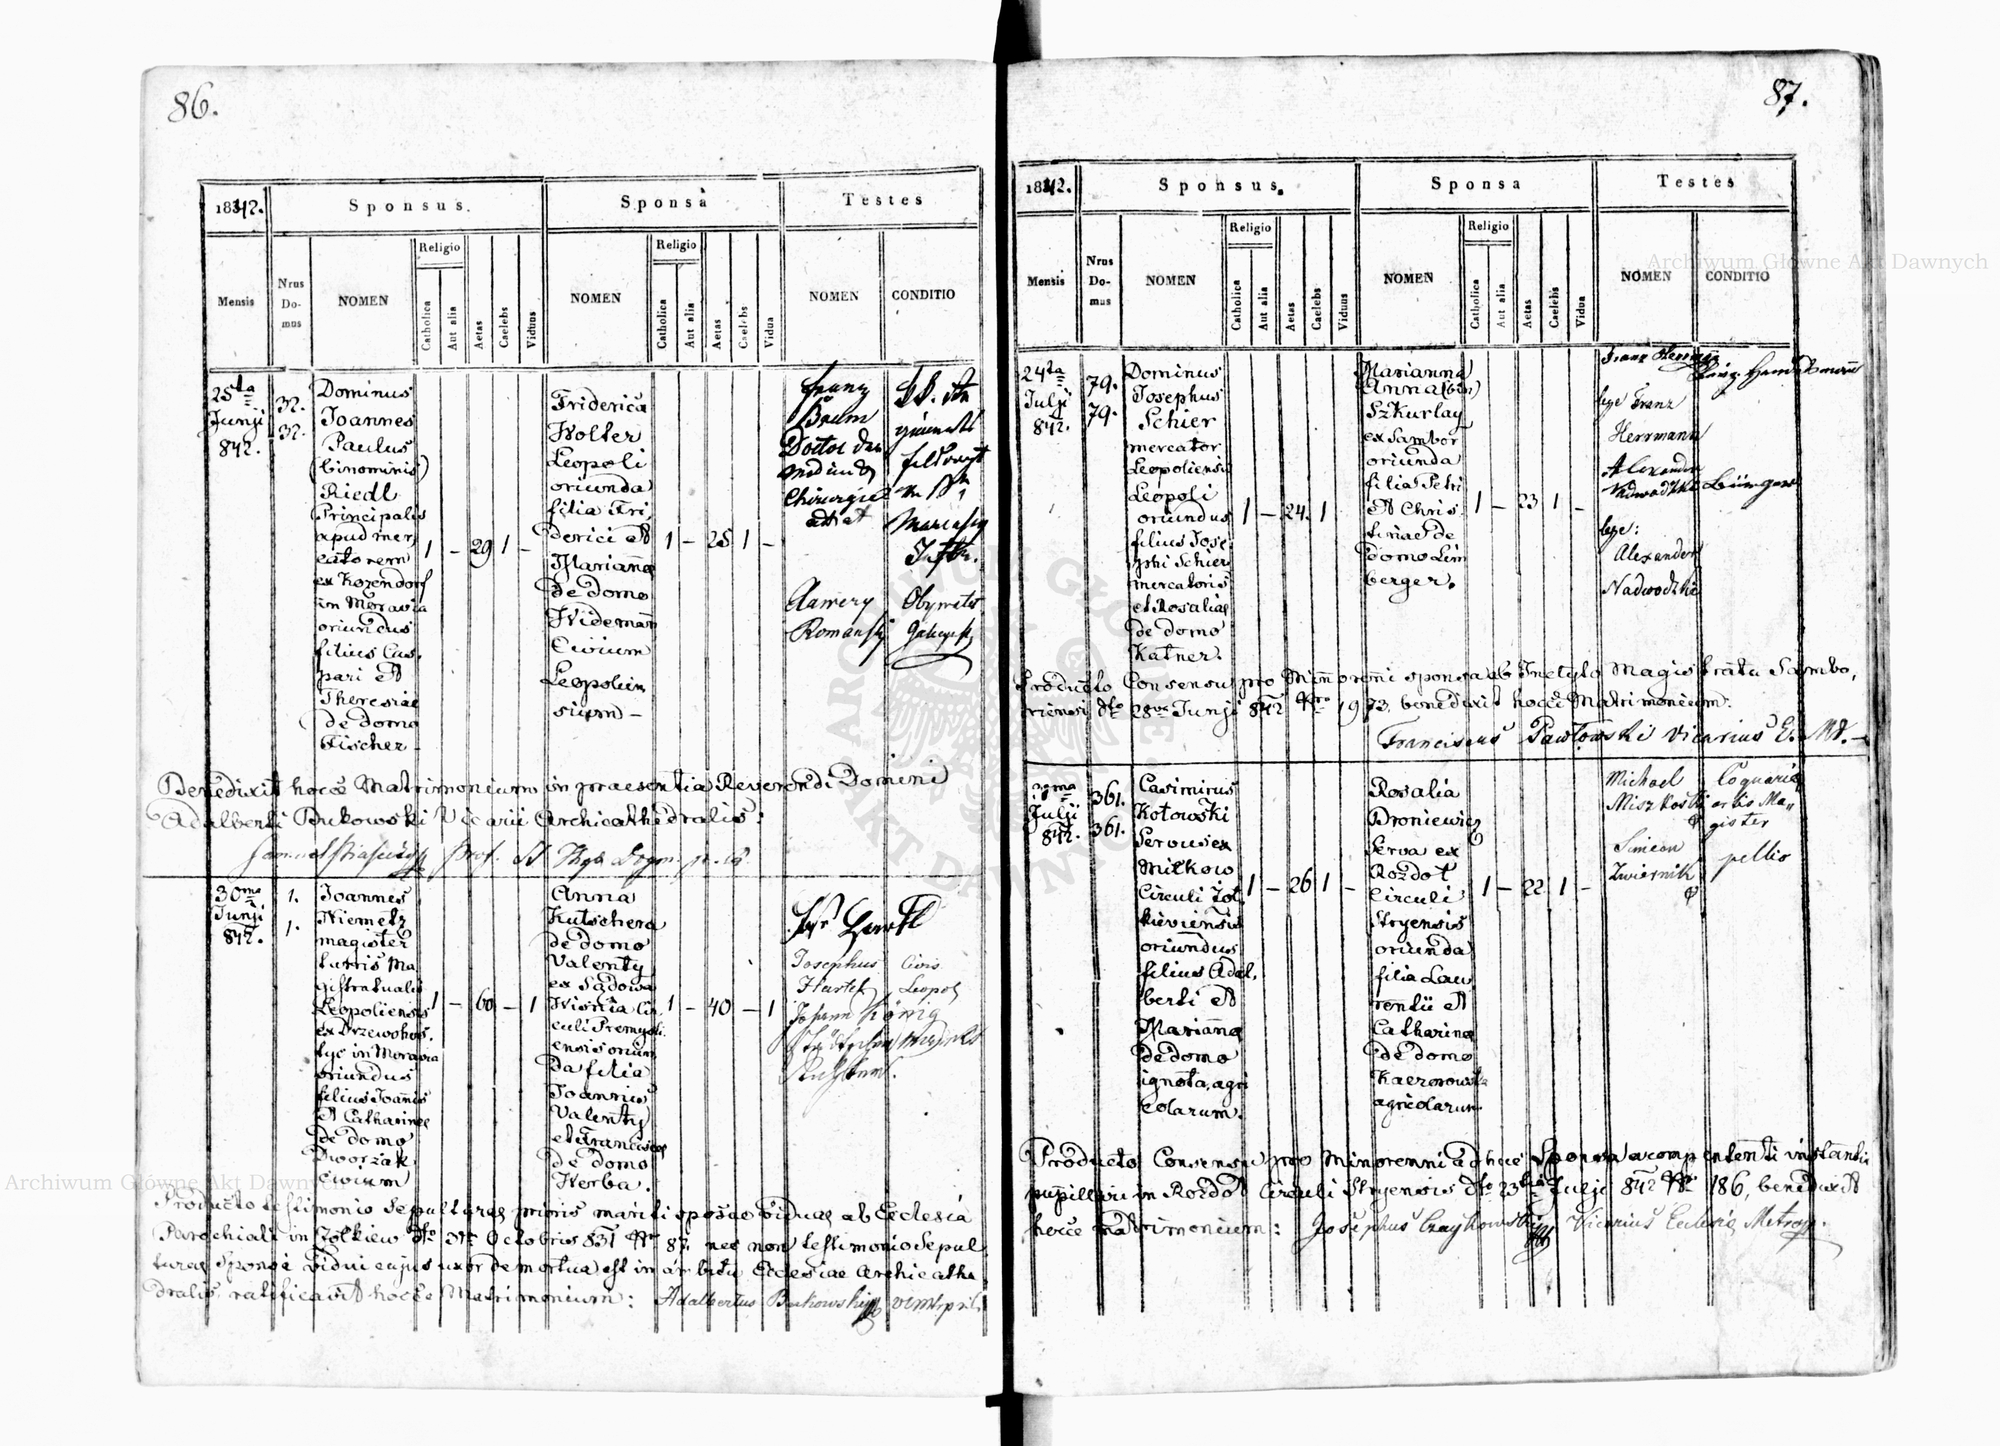 86.
1842.
Sponsus.
Sponsa
Testes
Mensis
Nrus Domus
NOMEN
Religio
Catholica
Aut alia
Aetas
Caelebs
Viduus
NOMEN
Religio
Catholica
Aut alia
Aetas
Caelebs
Vidua
NOMEN
CONDITIO
25ta
Junji
842.
32.
32.
Dominus
Joannes
Paulus
(binominis)
Riedl
Principalis
apud mer
catorem
ex Kozendorf
in Moravia
oriundus
filius Cas,
pari et
Theresiae
de domo
Fischer
1 – 29 1 –
Friderica
Wolter
Leopoli
oriunda
filia Fri,
derici et
Mariannae
de domo
Widemann
Civium
Leopolien
sium –
1 – 25 1 –
Franz
Baum
Doctor der
Medicin
Chirurgie
Xawery
Romański
Obywatel
Benedixit hocce Matrimonium in praesentia Reverendi Domini
Adalberti Bukowski Vicarii Archicathedralis:
30ma
Junji
842.
1.
1.
Joannes
Niemetz
magister
turris Ma
gistratualis
Leopoliensis
ex Drzewohos,
tyc in Moravia
oriundus
filius Joannis
et Catharinae
de domo
Dworzak
Civium
1 – 60 – 1
Anna
Kutschera
de domo
Valenty
ex Sądowa
Wisznia Cir
culi Premysli
ensis oriun
da filia
Joannis
Valenty
et Franciscae
de domo
Werba.
1 – 40 – 1
Josephus
Hartl
Civis
Leopol
Johann König
Producto testimonio Sepulturae prioris mariti sponsae viduae ab Ecclesia
Parochiali in Zołkiew dto 31a Octobris 831 Nr 87. nec non testimonio Sepul
turae Sponsi vidui cujus uxor demortua est in ambitu Ecclesiae Archicathe
dralis, ratificavit hocce Matrimonium: Adalbertus Bukowski
87.
1842.
Sponsus.
Sponsa
Testes
Mensis
Nrus Domus
NOMEN
Religio
Catholica
Aut alia
Aetas
Caelebs
Viduus
NOMEN
Religio
Catholica
Aut alia
Aetas
Caelebs
Vidua
NOMEN
CONDITIO
24ta
Julji
842.
79.
79.
Dominus
Josephus
Schier
mercator
Leopoliensis
Leopoli
oriundus
filius Jose
phi Schier
mercatoris
et Rosaliae
de domo
Katner.
1 – 24. 1
Marianna
Anna (bin)
Szkurlay
ex Sambor
oriunda
filia Petri
et Chris
tinae de
domo Lem
berger.
1 – 23 1 –
Franz Herrmann
lege Franz
Herrmann
Alexander
Nadwodzki
Bürger
lege:
Alexander
Nadwodzki
Producto Consensu pro Minorenni sponsa ab Inclyto Magistratu Sambo,
riensi dto 28va Junji 842 Nro 1973. benedixit hocce Matrimonium:
Franciscus Pawłowski Vicarius E. M.
Julji
842.
361.
361.
Casimirus
Kotowski
Servus ex
Milkow
Circuli Zoł
kieviensis
oriundus
filius Adal,
berti et
Mariannae
de domo
ignota, agri
colarum.
1 – 26 1 –
Rosalia
Broniewicz
Serva ex
Rozdoł
Circuli
Stryensis
oriunda
filia Lau
rentii et
Catharinae
de domo
agricolarum.
1 – 22 1 –
Michael
Coquariae
artis Ma,
gister
Simeon
Zwiernik
pellio
Producto Consensu pro Minorenni adhuc Sponsa a competenti instantia
pupillari in Rozdoł Circuli Stryensis dto 23tia Julji 842 Nr 186, benedixit
hocce matrimonium: Josephus Czaykowski Vicarius Ecclesiae Metrop.
Archiwum Główne Akt Dawnych
Archiwum Główne Akt Dawnych
ARCHIWUM GŁÓWNE AKT DAWNYCH